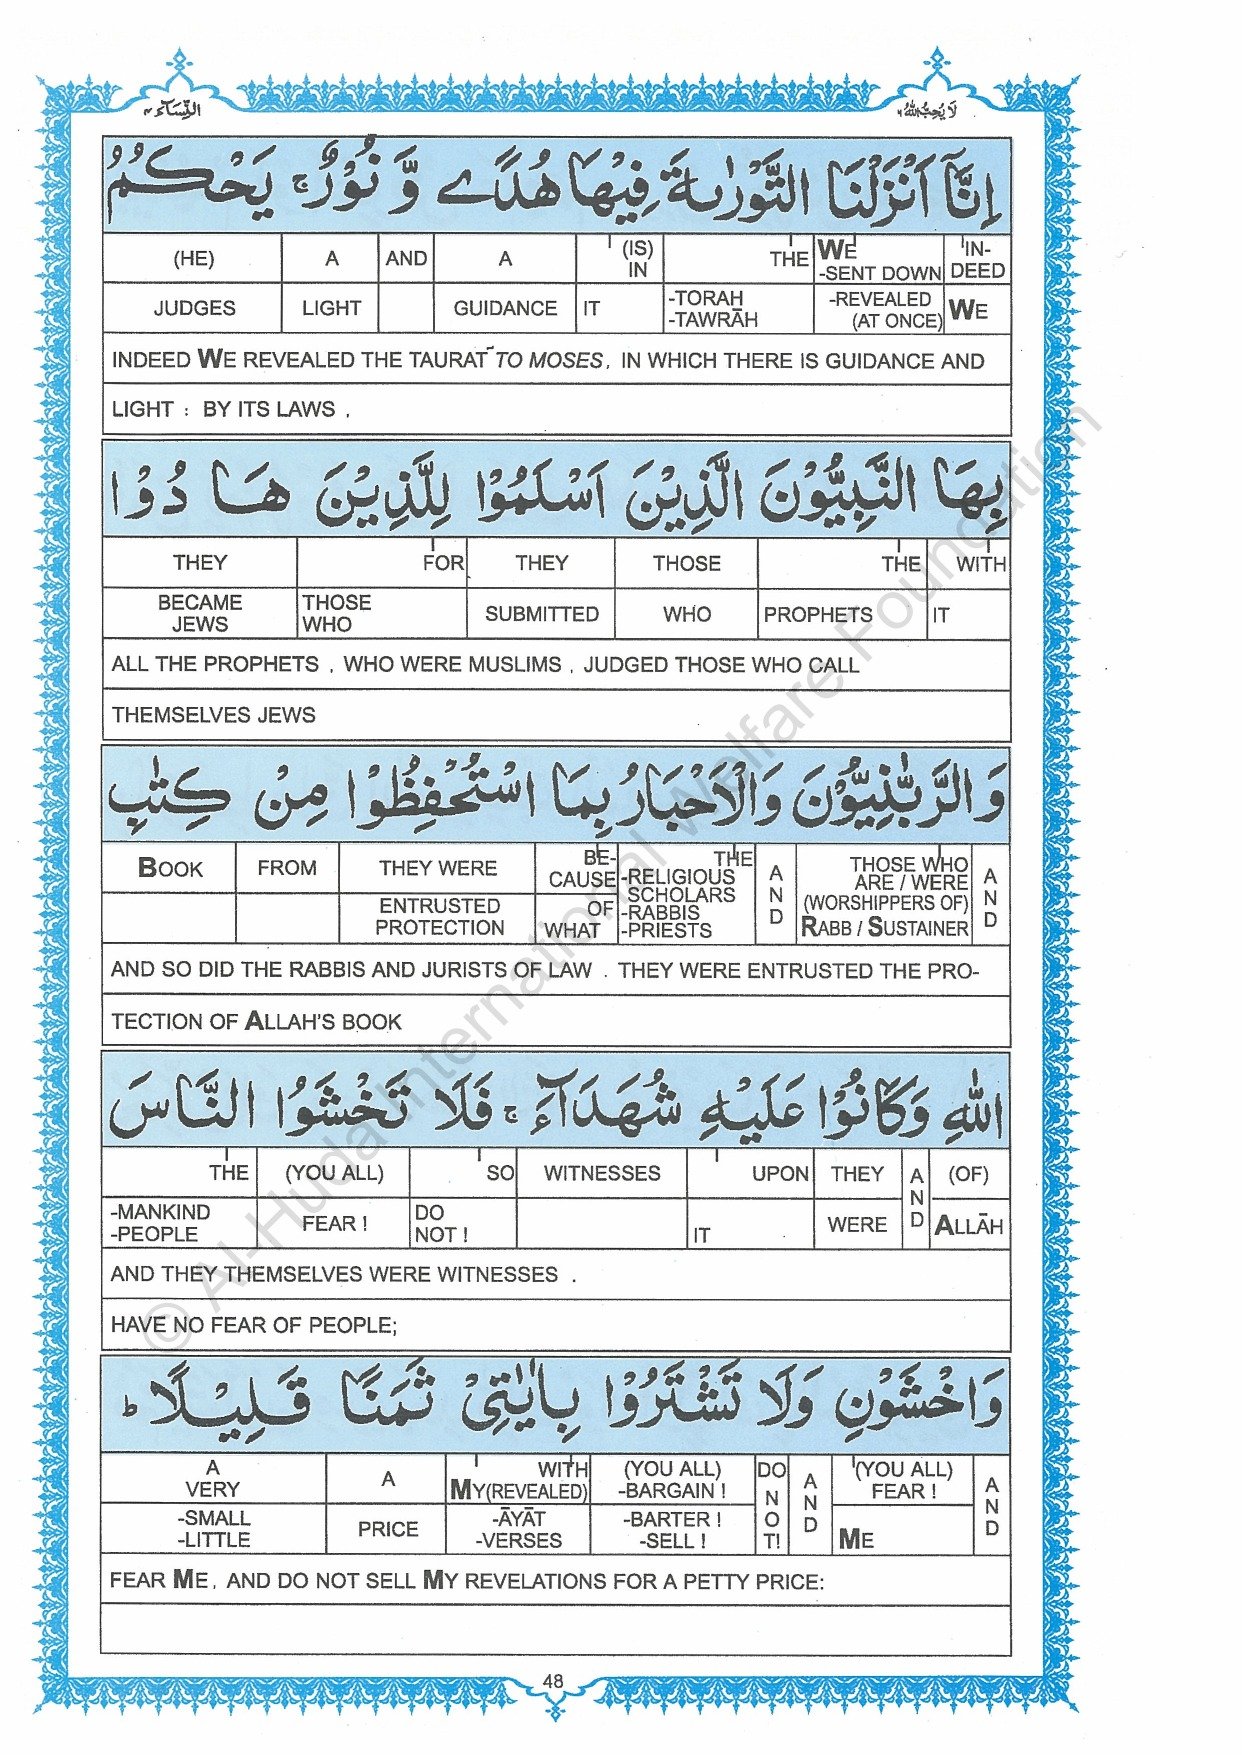 النِّسَآء ٤
لَا يُحِبُّ اللّٰهُ ٦
اِنَّاۤ اَنْزَلْنَا التَّوْرٰىةَ فِيْهَا هُدًے وَّ نُوْرٌ ۚ يَحْكُمُ
(HE) A AND A (IS) IN THE WE -SENT DOWN IN-DEED
JUDGES LIGHT GUIDANCE IT -TORAH -TAWRĀH -REVEALED (AT ONCE) WE
INDEED WE REVEALED THE TAURAT TO MOSES, IN WHICH THERE IS GUIDANCE AND
LIGHT : BY ITS LAWS ,
بِهَا النَّبِيُّوْنَ الَّذِيْنَ اَسْلَمُوْا لِلَّذِيْنَ هَا دُوْا
THEY FOR THEY THOSE THE WITH
BECAME JEWS THOSE WHO SUBMITTED WHO PROPHETS IT
ALL THE PROPHETS , WHO WERE MUSLIMS , JUDGED THOSE WHO CALL
THEMSELVES JEWS
وَالرَّبّٰنِيُّوْنَ وَالْاَحْبَارُ بِمَا اسْتُحْفِظُوْا مِنْ كِتٰبِ
BOOK FROM THEY WERE BE-CAUSE THE -RELIGIOUS SCHOLARS AND THOSE WHO ARE / WERE AND
ENTRUSTED PROTECTION OF WHAT -RABBIS -PRIESTS (WORSHIPPERS OF) RABB / SUSTAINER
AND SO DID THE RABBIS AND JURISTS OF LAW . THEY WERE ENTRUSTED THE PRO-
TECTION OF ALLAH'S BOOK
اللّٰهِ وَكَانُوْا عَلَيْهِ شُهَدَآءَ ۚ فَلَا تَخْشَوُا النَّاسَ
THE (YOU ALL) SO WITNESSES UPON THEY AND (OF)
-MANKIND -PEOPLE FEAR ! DO NOT ! IT WERE ALLĀH
AND THEY THEMSELVES WERE WITNESSES .
HAVE NO FEAR OF PEOPLE;
وَاخْشَوْنِ وَلَا تَشْتَرُوْا بِاٰيٰتِيْ ثَمَنًا قَلِيْلًا ؕ
A VERY A WITH MY(REVEALED) (YOU ALL) -BARGAIN ! DO NOT! AND (YOU ALL) FEAR ! AND
-SMALL -LITTLE PRICE -ĀYĀT -VERSES -BARTER ! -SELL ! ME
FEAR ME, AND DO NOT SELL MY REVELATIONS FOR A PETTY PRICE:
48
© Al-Huda International Welfare Foundation